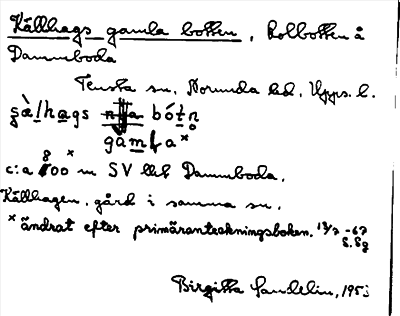 Källhags gamla botten, Kolbotten å
Dammboda
Tensta sn, Norunda hd, Upps. l.
ʂàlhags bótn̥
gam̲ɬa×
c:a 800 × m SV lbl Dammboda.
Källhagen, gård i samma sn.
× ändrat efter primäranteckningsboken. 13/7 -67
S.Sg
Birgitta Sundelin, 1953